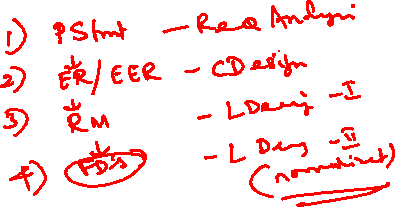 1) PStmt - Req Analysi
2) ER/EER - CDesign
3) RM - LDesig - I
4) FD's - L Des - II
(normalizat)